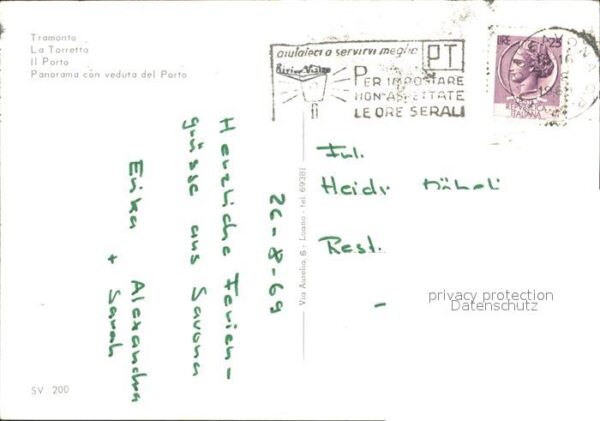 Tramonto
La Torretta
Il Porto
Panorama con veduta del Porto
aiutateci a servirvi meglio
PT
PER IMPOSTARE
NON ASPETTATE
LE ORE SERALI
LIRE 25
REPUBBLICA
ITALIANA
26-8-69
Herzliche Ferien-
grüsse aus Savona
Erika Alexandra
+ Sarah
Via Aurelia, 6 - Loano - tel. 69381
Frl.
Heidi
Rest.
privacy protection
Datenschutz
SV. 200